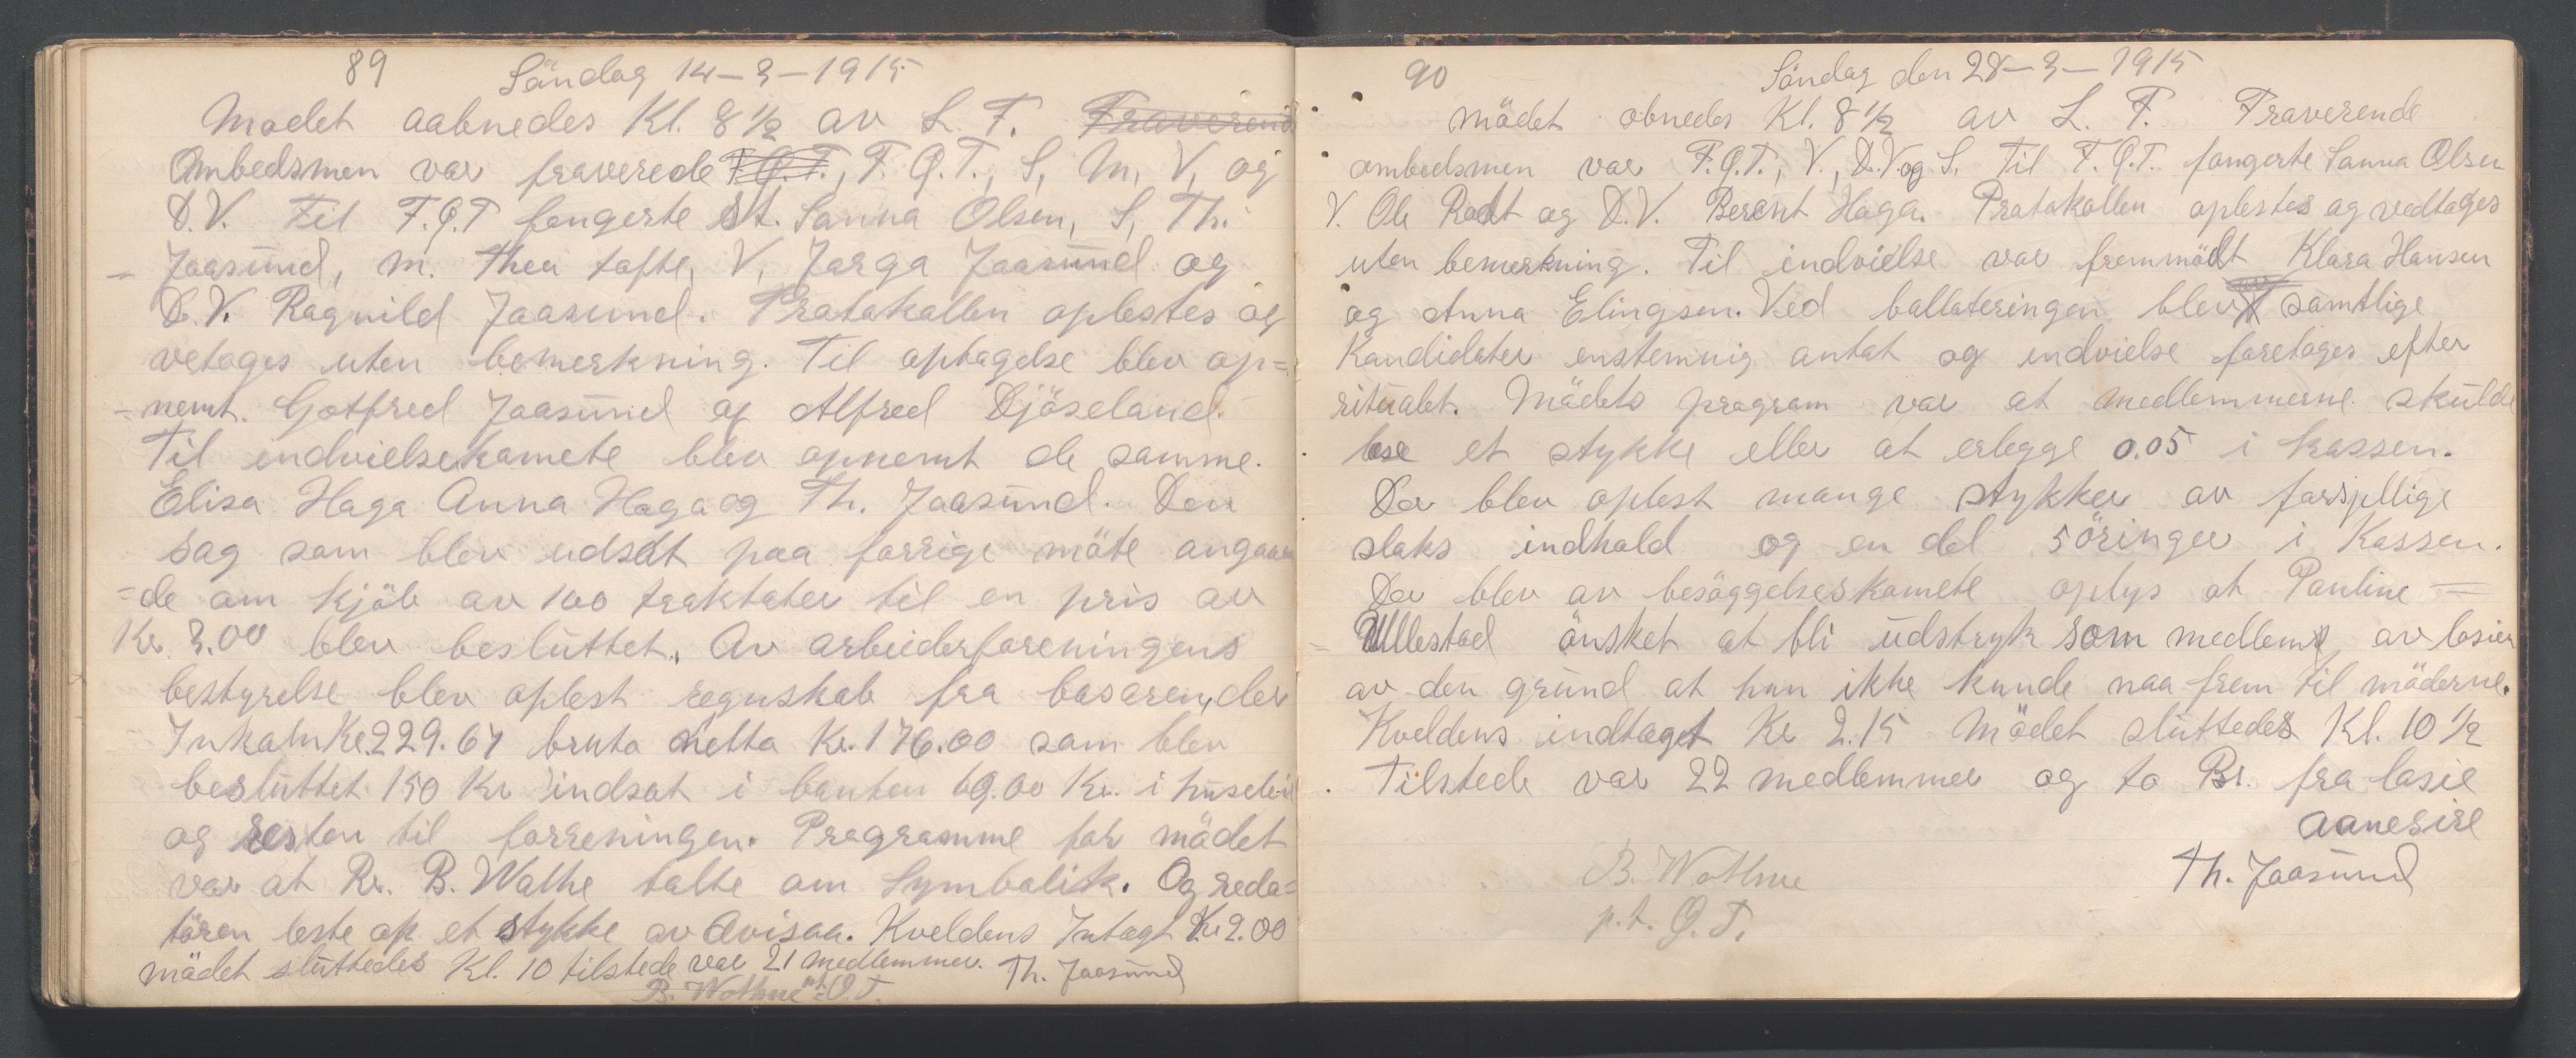 89 Söndag 14-3-1915
Mödet aabnedes Kl. 8 1/2 av L. T. Fraverend
Ombedsmen var fraverede F.Q.T., F. Q. T., S, M, V, og
D.V. Til F.Q.T fongerte St. Sanna Olsen, S, Th.
- Jaasund, M. Thea tofte, V, Jorga Jaasund og
D.V. Ragnild Jaasund. Protokollen oplestes og
vetoges uten bemerkning. Til optagelse blev op=
=nemt. Gotfred Jaasund og Alfred Djöseland.
Til indvielsekomete blev opnemt de samme.
Elisa Haga Anna Haga og Th. Jaasund. Den
sag som blev udsat paa forrige möte angaaen
=de om kjöb av 100 traktater til en pris av
Kr. 3.00 blev besluttet. Av arbeiderforeningens
bestyrelse blev oplest regnskab fra basaren, der
Inkom Kr. 229.67 bruto netto Kr. 176.00 som blev
besluttet 150 Kr indsat i banken 69.00 Kr. i
og resten til forreningen. Programme for mödet
var at Br. B. Wathe talte om Symbolik. Og reda=
tören leste op et stykke av Avisaa. Kveldens Intagt Kr 2.00
mödet sluttedes Kl. 10 tilstede var 21 medlemmer. Th. Jaasund
B. Wothne pt. Q.T.
90 Söndag den 28-3-1915
mödet obnedes Kl. 8 1/2 av L. T. Fraverende
ombedsmen var F.Q.T., V., D.V. og S. Til F.Q.T. fongerte Sanna Olsen
V. Ole Rodt og D.V. Berent Haga. Protokollen oplestes og vedtoges
uten bemerkning. Til indvielse var fremmödt Klara Hansen
og Anna Elingsen. Ved ballateringen blev samtlige
Kandidater enstemnig antat og indvielse foretoges efter
ritualet. Mödets program var at medlemmerne skulde
lese et stykke eller at erlegge 0.05 i kassen.
Der blev oplest mange stykker av forsjellige
slaks indhold og en del 5öringer i Kassen.
Der blev av besöggelseskomete oplys at Pauline =
= Ullestad önsket at bli udstryk som medlem av losien
av den grund at hun ikke kunde naa frem til möderne.
Kveldens indtaget Kr 2.15 Mödet sluttedes Kl. 10 1/2
Tilstede var 22 medlemmer og to Br. fra losie
Aanesire
Th. Jaasund
B. Wothne
p.t. Q.T.